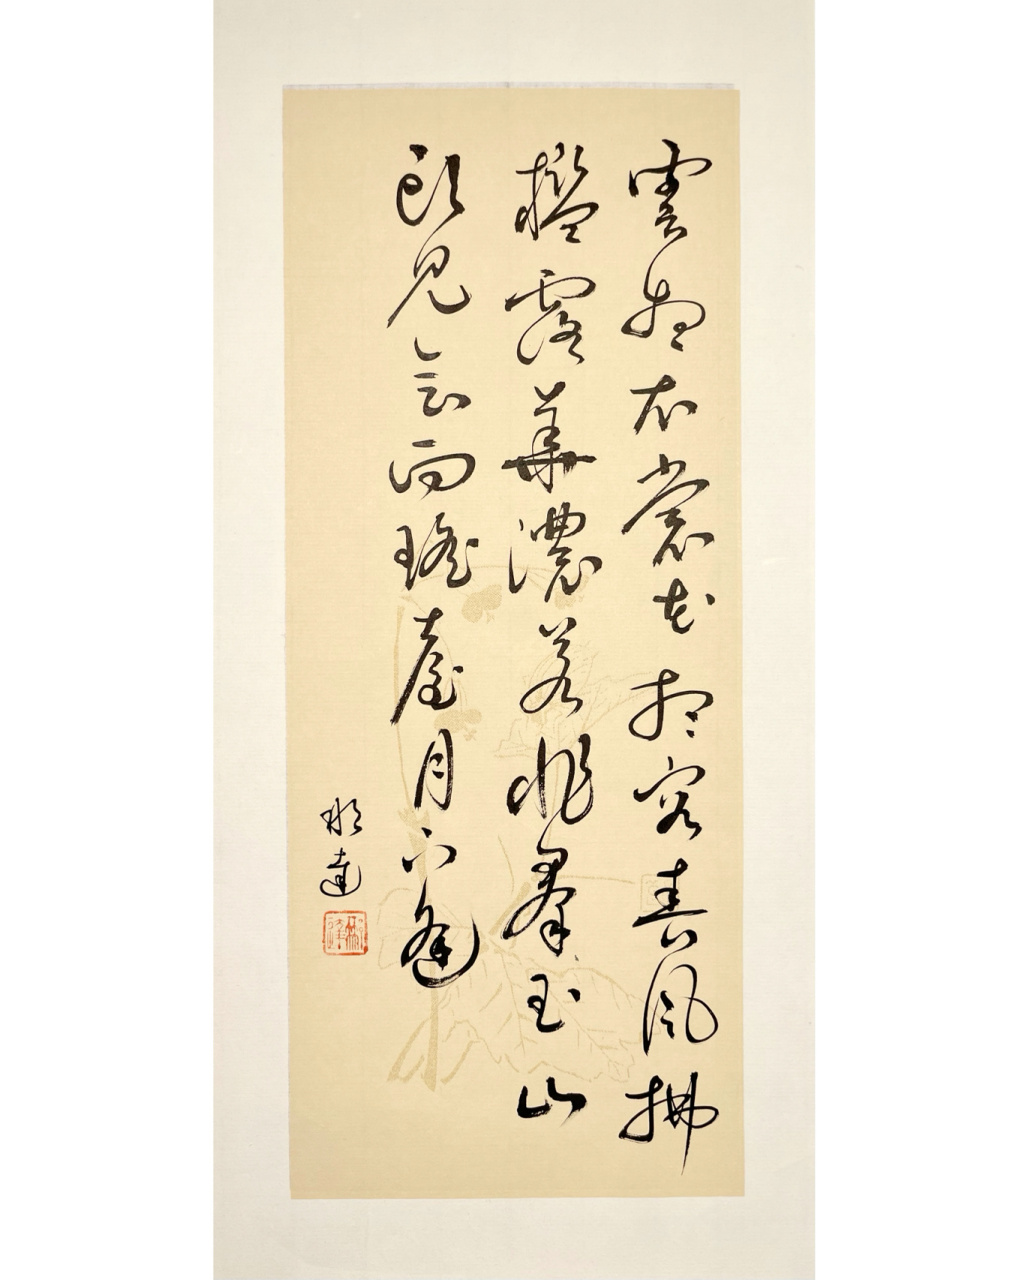 雲想衣裳花想容春風拂
檻露華濃若非羣玉山
頭見會向瑤臺月下逢
達